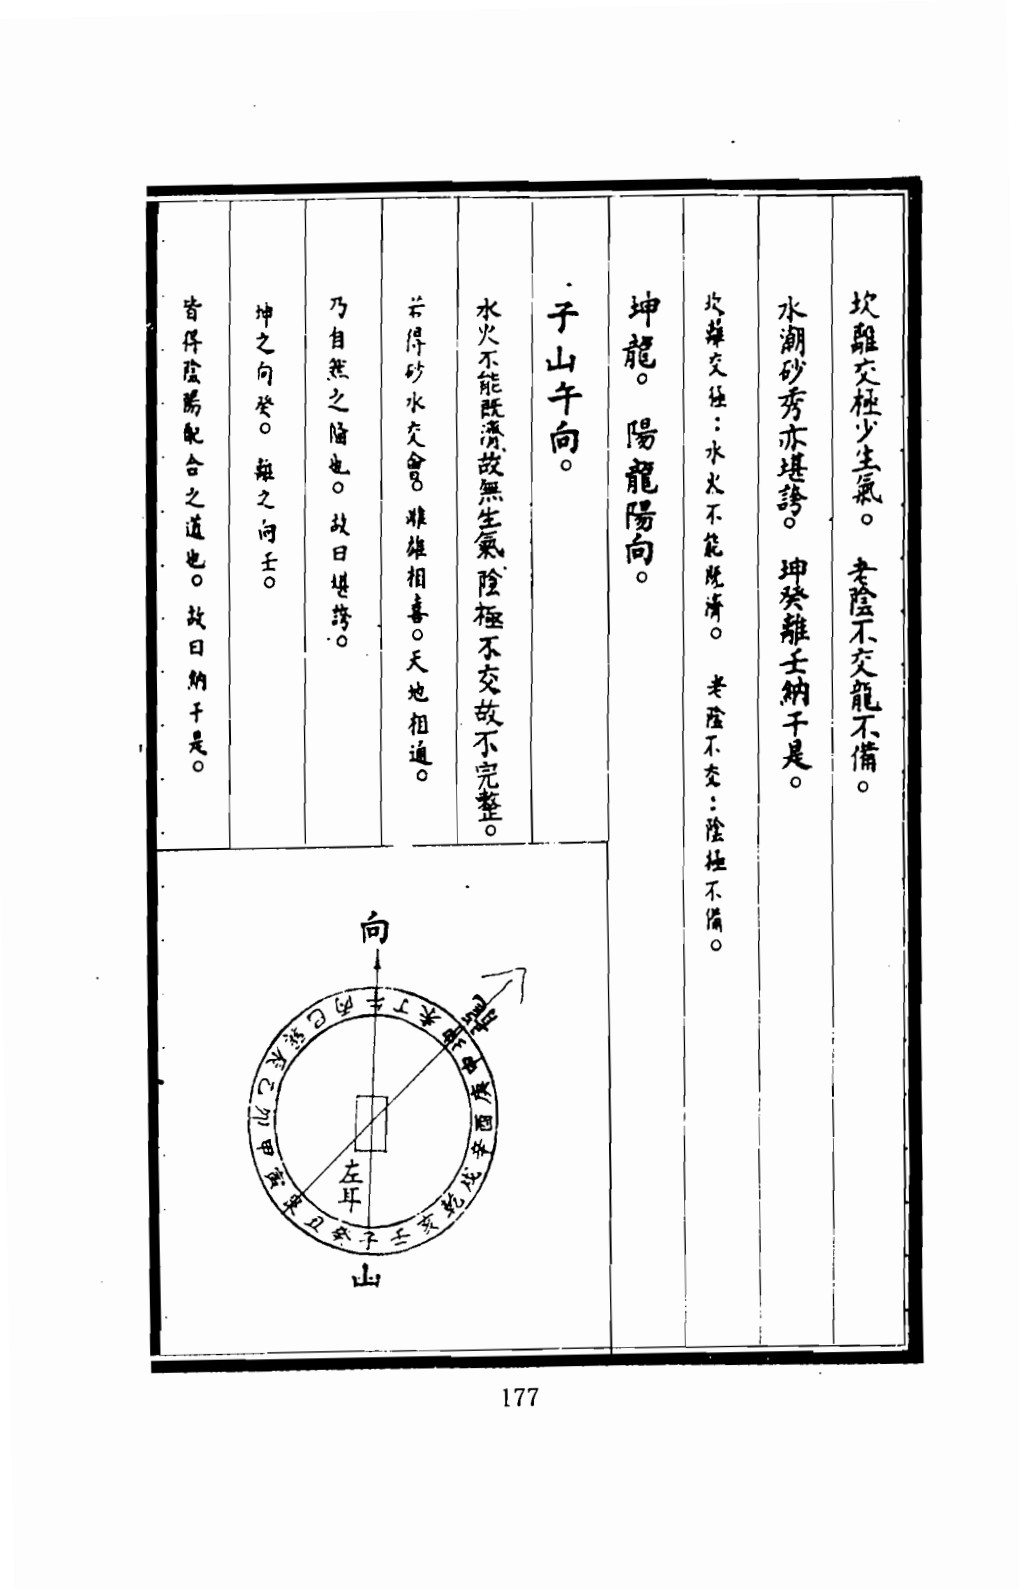 坎離交極少生氣。　老陰不交龍不備。
水潮砂秀亦堪誇。　坤癸離壬納干是。
坎離交極：水火不能既濟。　老陰不交：陰極不備。
坤龍。　陽龍陽向。
子山午向。
水火不能既濟、故無生氣、陰極不交、故不完整。
若得砂水交會。雌雄相喜。天地相通。
乃自然之陰也。故曰堪誇。
坤之向癸。離之向壬。
皆得陰陽配合之道也。故曰納干是。
向
龍
午丁未坤申庚酉辛戌乾亥壬子癸丑艮寅甲卯乙辰巽巳丙
左耳
山
177